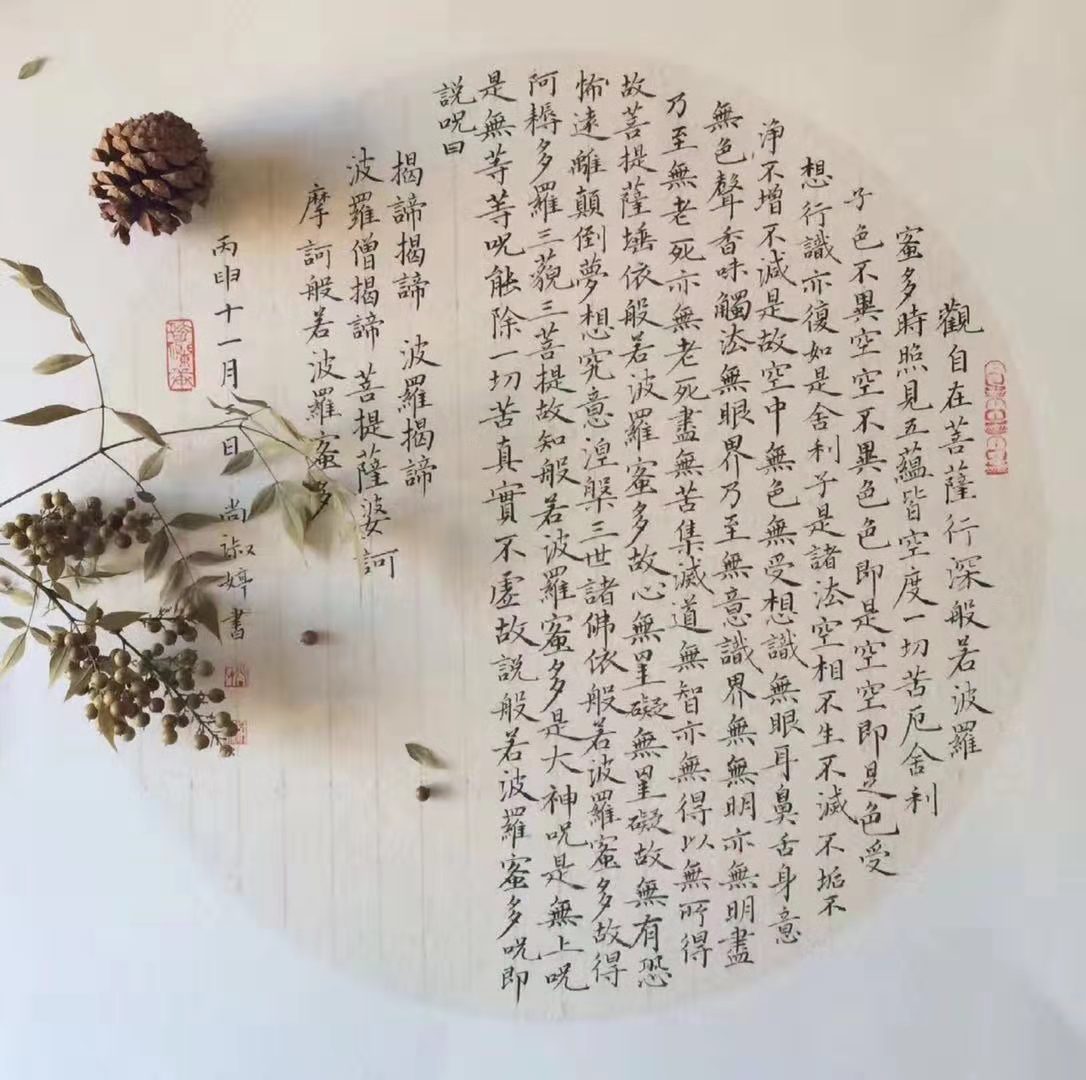 觀自在菩薩行深般若波羅
蜜多時照見五蘊皆空度一切苦厄舍利
子色不異空空不異色色即是空空即是色受
想行識亦復如是舍利子是諸法空相不生不滅不垢不
淨不增不減是故空中無色無受想識無眼耳鼻舌身意
無色聲香味觸法無眼界乃至無意識界無無明亦無明盡
乃至無老死亦無老死盡無苦集滅道無智亦無得以無所得
故菩提薩埵依般若波羅蜜多故心無罣礙無罣礙故無有恐
怖遠離顛倒夢想究竟涅槃三世諸佛依般若波羅蜜多故得
阿耨多羅三藐三菩提故知般若波羅蜜多是大神呪是無上呪
是無等等呪能除一切苦真實不虛故說般若波羅蜜多呪即
說呪曰
揭諦揭諦 波羅揭諦
波羅僧揭諦 菩提薩婆訶
摩訶般若波羅蜜多
丙申十一月 日 尚淑婷書